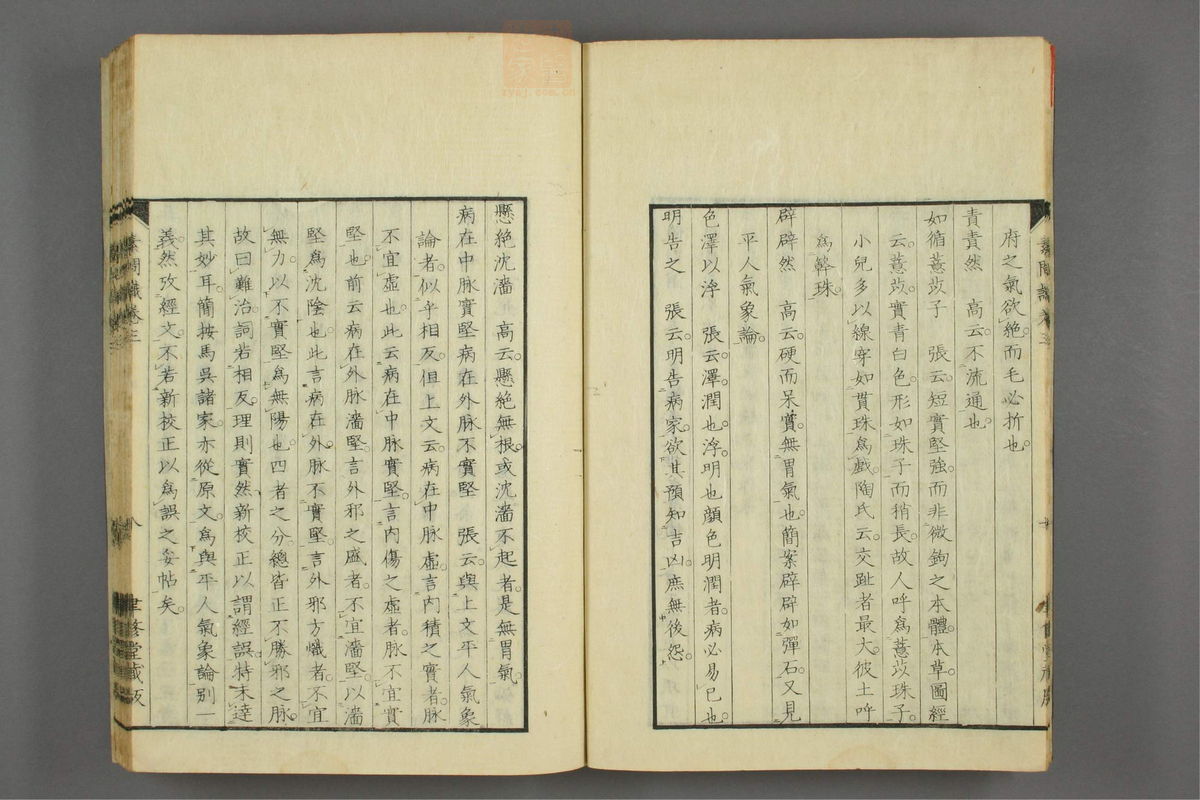 府之氣欲絶而毛必折也。
責責然　高云。不流通也。
如循薏苡子　張云。短實堅強。而非微鉤之本體。本草圖經
云。薏苡。實青白色。形如珠子而稍長。故人呼爲薏苡珠子。
小兒多以線穿如貫珠爲戲。陶氏云。交趾者最大。彼土呼
爲簳珠。
辟辟然　高云。硬而呆實。無胃氣也。簡案辟辟如彈石。又見
平人氣象論。
色澤以浮　張云。澤。潤也。浮。明也。顔色明潤者。病必易已也。
明告之　張云。明告病家。欲其預知吉凶。庶無後怨。
懸絶沈濇　高云。懸絶無根。或沈濇不起者。是無胃氣。
病在中脉實堅病在外脉不實堅　張云。與上文平人氣象
論者。似乎相反。但上文云。病在中脉虛。言内積之實者。脉
不宜虛也。此云病在中脉實堅。言内傷之虛者。脉不宜實
堅也。前云病在外脉濇堅。言外邪之盛者。不宜濇堅。以濇
堅爲沈陰也。此言病在外。脉不實堅。言外邪方熾者。不宜
無力。以不實堅爲無陽也。四者之分。總皆正不勝邪之脉。
故曰難治。詞若相反。理則實然。新校正以謂經誤。特未達
其妙耳。簡按馬吳諸家。亦從原文。爲與平人氣象論別一
義。然攷經文。不若新校正以爲誤之妥帖矣。
素問識卷三
八
聿修堂藏版